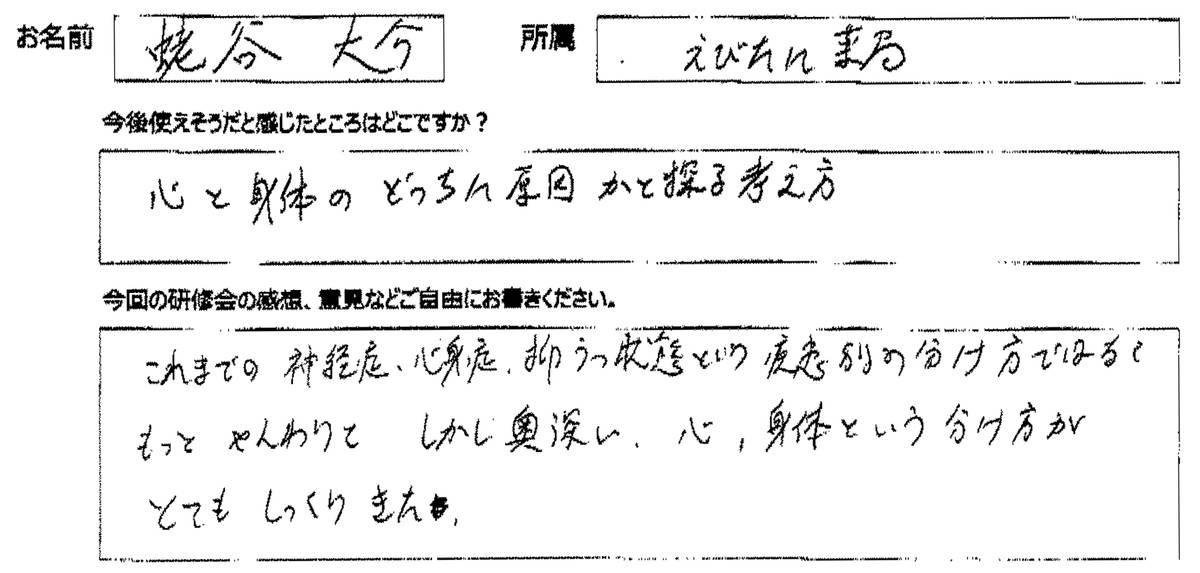 お名前 蛯谷 大介 所属 えびたに薬局
今後使えそうだと感じたところはどこですか？
心と身体の どっちに原因かと探る考え方
今回の研修会の感想、意見などご自由にお書きください。
これまでの 神経症、心身症、抑うつ状態という 疾患別の分け方ではなく
もっと やんわりと しかし奥深い、心、身体という分け方が
とても しっくりきた